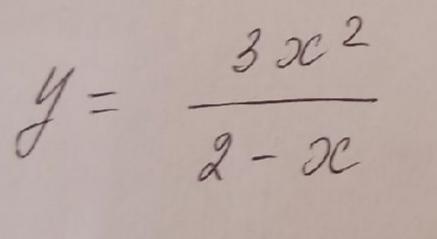 y = \frac{3x^2}{2 - x}